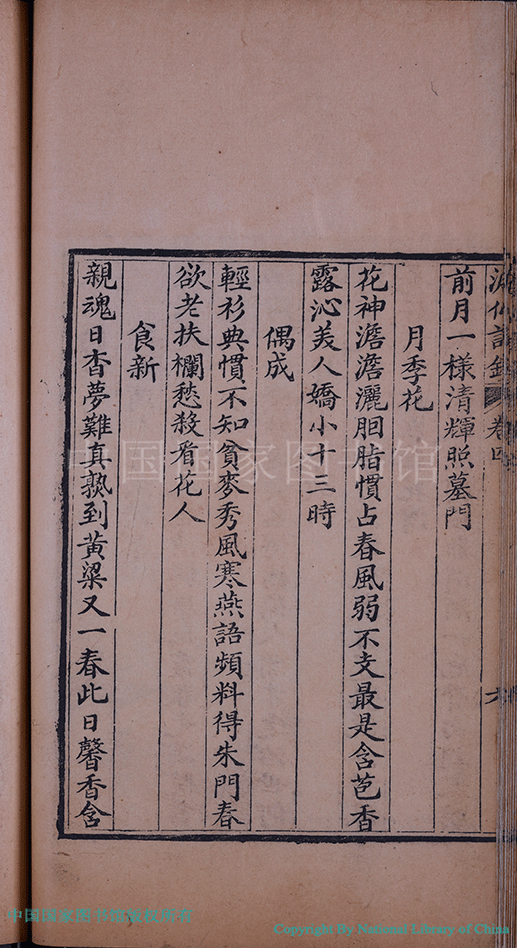 卷四
六
前月一樣清輝照墓門
月季花
花神澹澹灑胭脂慣占春風弱不支最是含苞香
露沁美人嬌小十三時
偶成
輕衫典慣不知貧麥秀風寒燕語頻料得朱門春
欲老扶欄愁殺看花人
食新
親魂日杳夢難真孰到黃粱又一春此日馨香含
中国国家图书馆
中国国家图书馆版权所有
Copyright By National Library of China